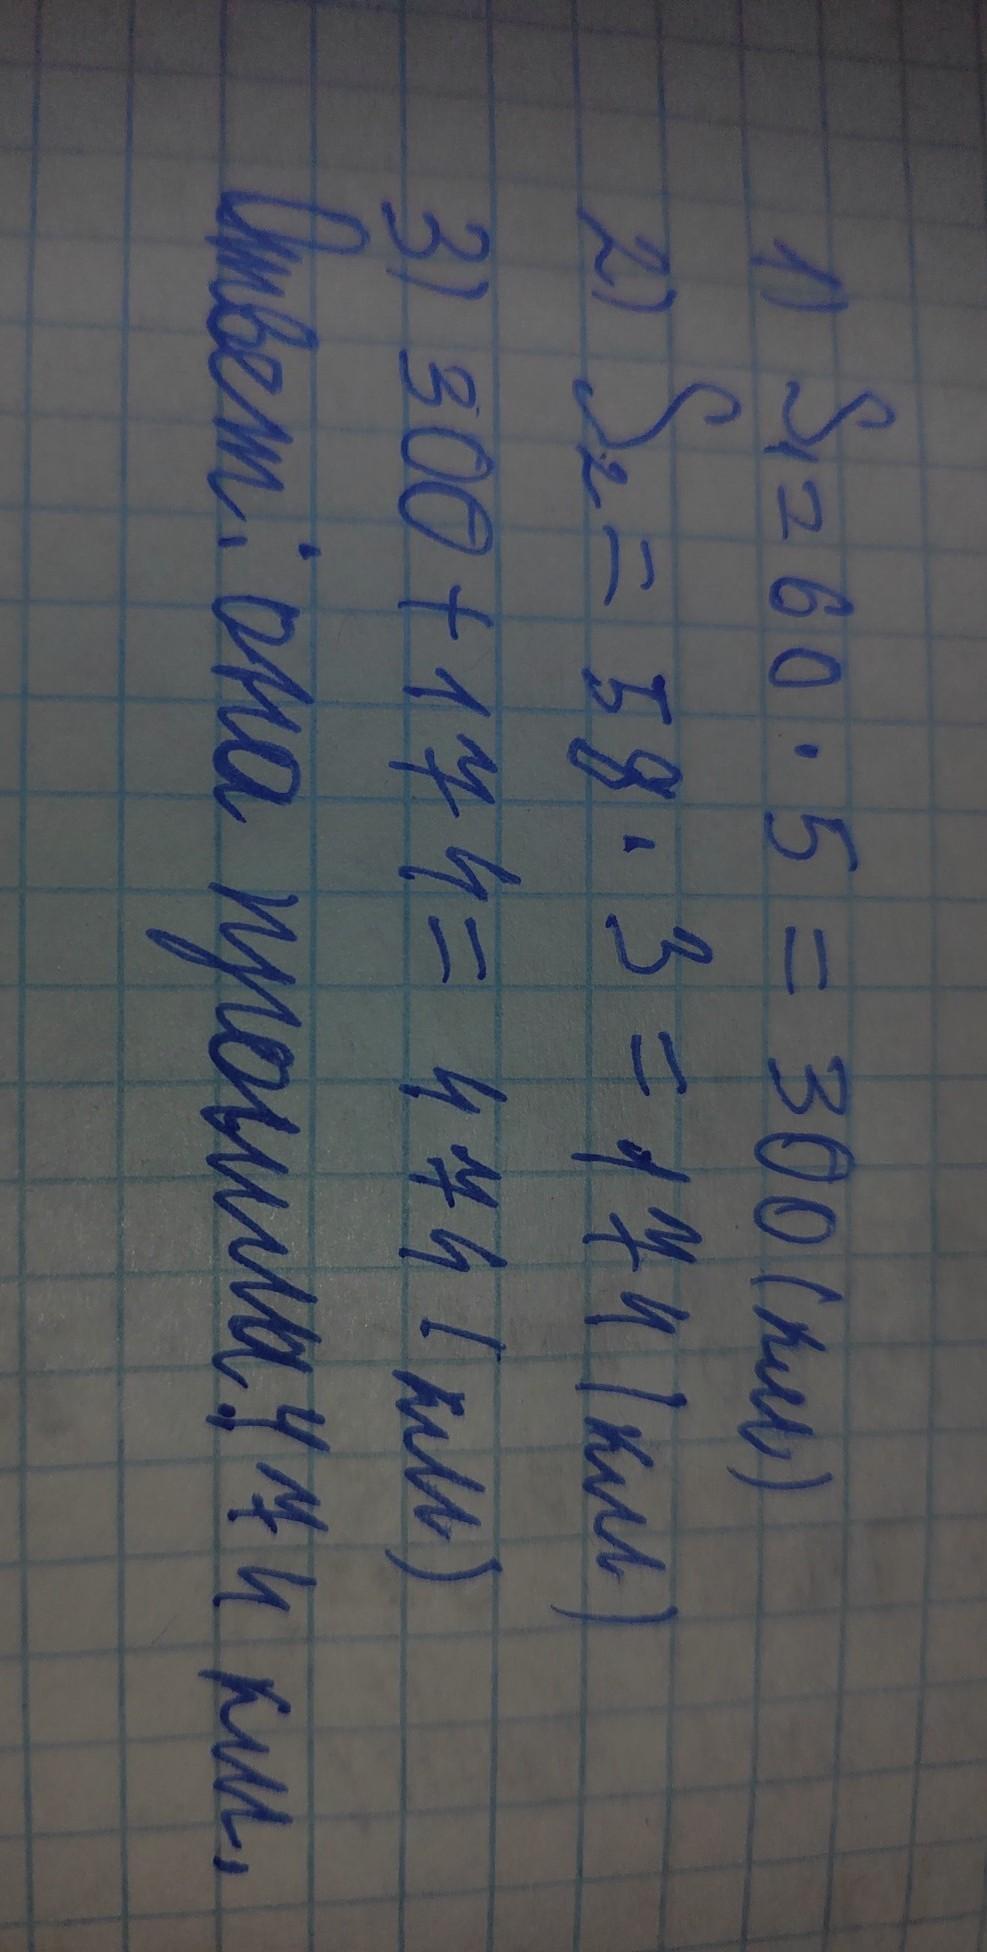 1) S₁ = 60 · 5 = 300 (км)
2) S₂ = 58 · 3 = 174 (км)
3) 300 + 174 = 474 (км)
Ответ: она прошла 474 км.